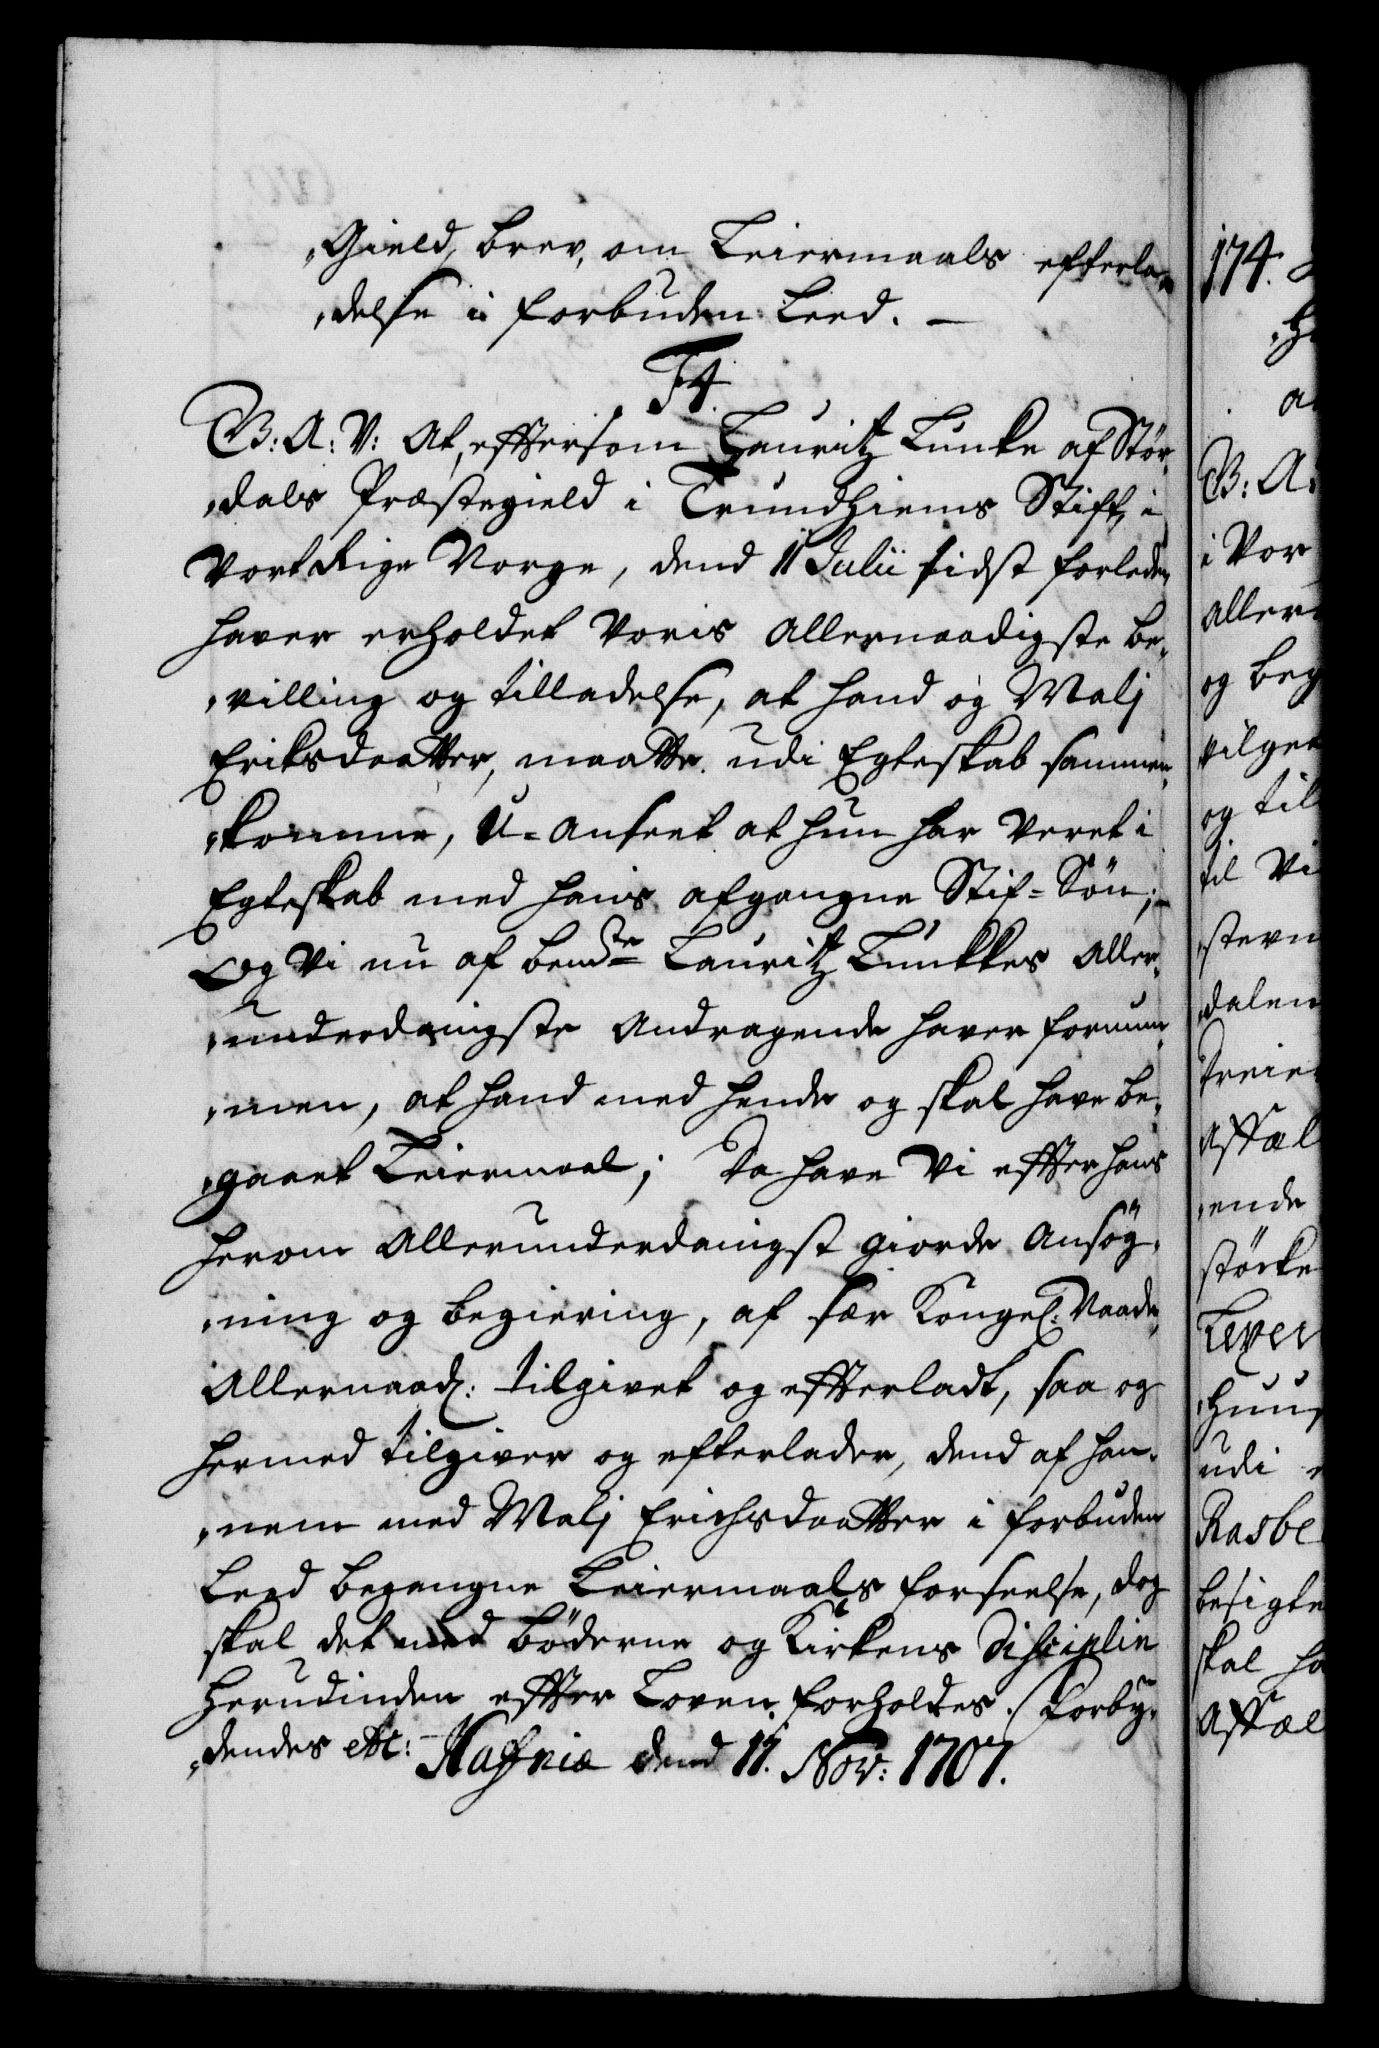 „Gield, brev, om Leiermaals efterla„
„delse i forbuden Leed. —
F4.
B: A: V: At, eftersom Lauritz Lunke af Stør„
„dals Præstegield i Trundhiems Stift, i
Vort Rige Norge, dend 11 Julii sidst forleden
haver erholdet Voris Allernaadigste be„
„villing og tilladelse, at hand og Malj
Eriksdaatter, maatte udi Egteskab sammen„
„komme, U-anseet at hun har veret i
Egteskab med hans afgangne Stif-Søn;
Og Vi nu af bemte Lauritz Lunkkes Aller„
„underdanigste Andragende haver fornum„
„men, at hand med hende og skal have be„
„gaaet Leiermaal; Da have Vi effter hans
herom Allerunderdanigst giorde Ansøg„
„ning og begiering, af sær Kongel: Naade
Allernaad: tilgivet og effterladt, saa og
hermed tilgiver og efterlader, dend af han„
„nem med Malj Erichsdaatter i forbuden
Leed begangne Leiermaals forseelse, dog
skal det med bøderne og Kirkens Disciplin
herudinden effter Loven forholdes. Forby„
„dendes etc: Hafniæ dend 11. Nov: 1707.
174.
B: A:
i Vor
Aller
og beg
tilgee
og til
til Vi
stevn
„dalen
Affæl
„ende
størke
Leyer
„Huus
udi
Rasbe
besigte
skal ha
Affæl